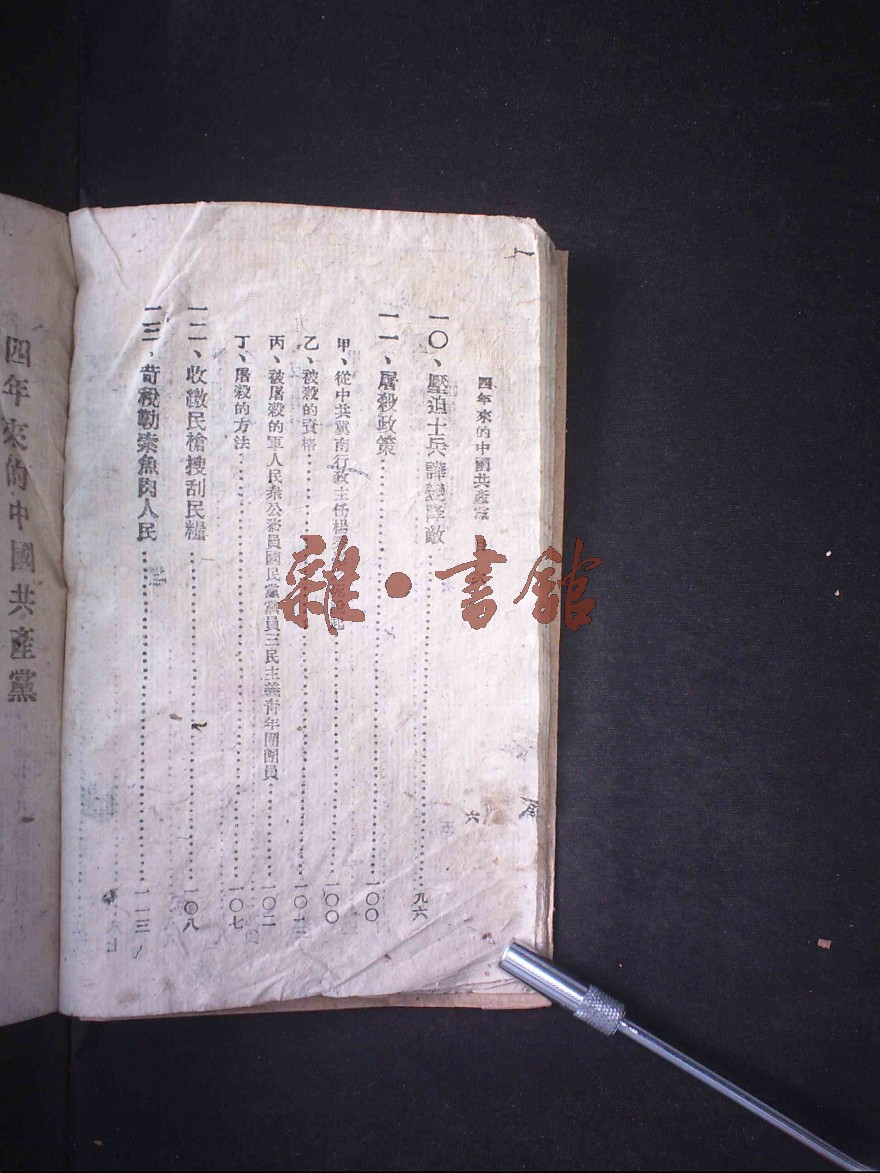 四年來的中國共產黨
六
一〇、壓迫士兵譁變
敵
九六
一一、屠殺政策
一〇〇
甲、從中共冀南行政主任楊
一〇〇
乙、被殺的資格
丙、被屠殺的軍人民眾公務員國民黨黨員三民主義青年團團員
一〇二
丁、屠殺的方法
一〇七
一二、收繳民槍搜刮民糧
一〇八
一三、苛稅勒索魚肉人民
一一三
四年來的中國共產黨
雜·書館